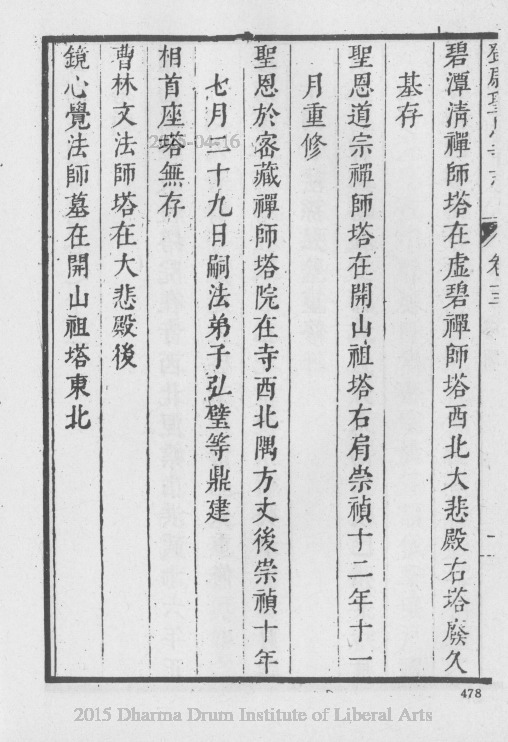 碧潭清禪師塔在虛碧禪師塔西北大悲殿右塔廢久
基存
聖恩道宗禪師塔在開山祖塔右肩崇禎十二年十一
月重修
聖恩於密藏禪師塔院在寺西北隅方丈後崇禎十年
七月二十九日嗣法弟子弘璧等鼎建
相首座塔無存
曹林文法師塔在大悲殿後
鏡心覺法師墓在開山祖塔東北
478
2015 Dharma Drum Institute of Liberal Arts